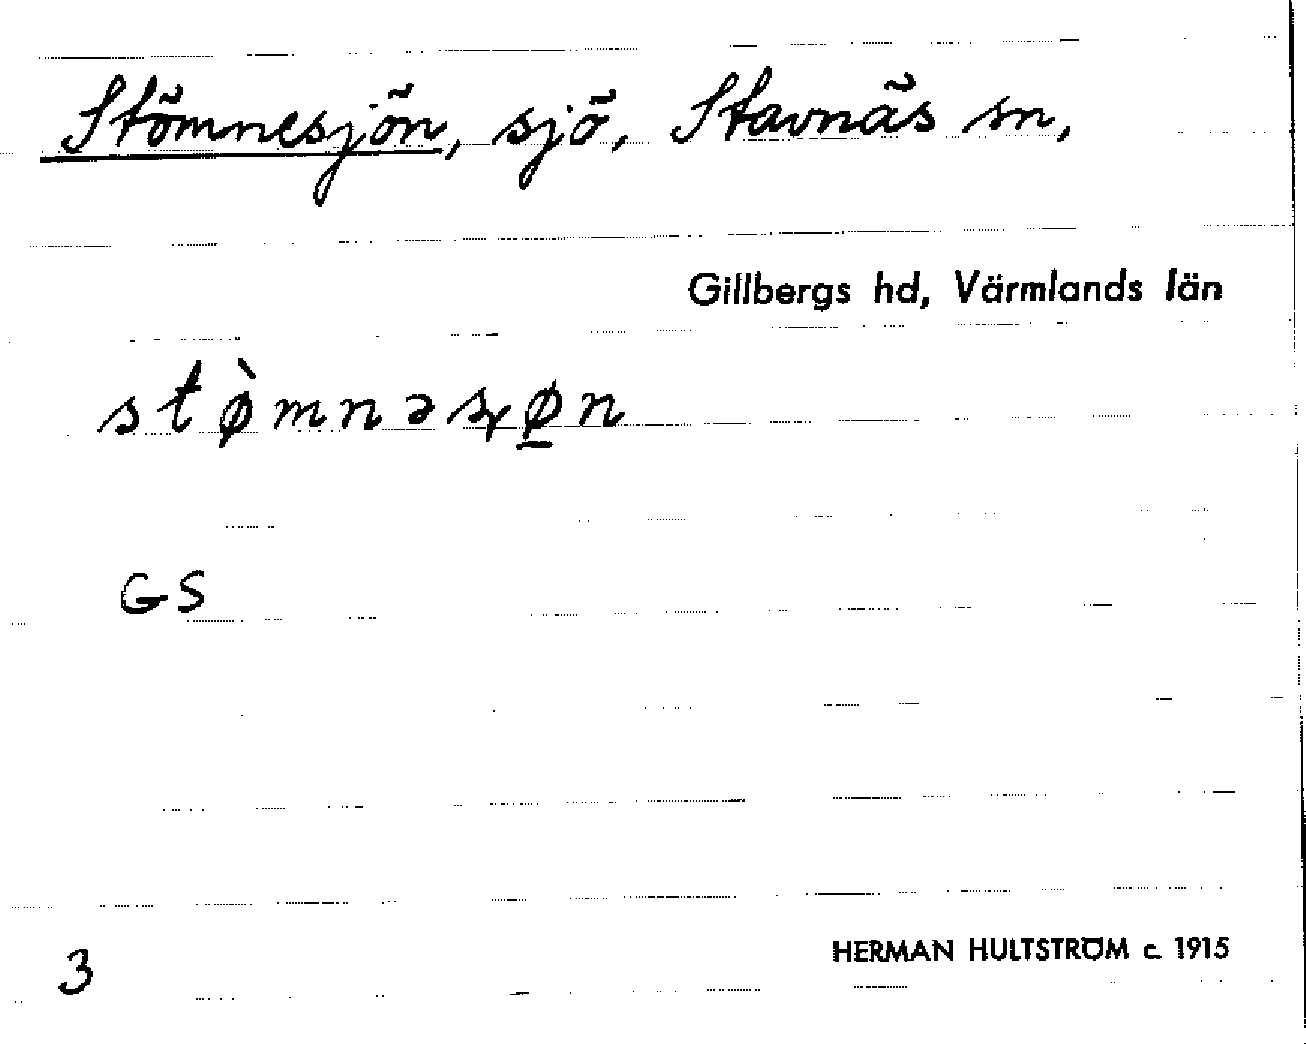 Stömnesjön, sjö, Stavnäs sn,
Gillbergs hd, Värmlands län
stø̀mnəsχø̱n
GS
3
HERMAN HULTSTRÖM c. 1915